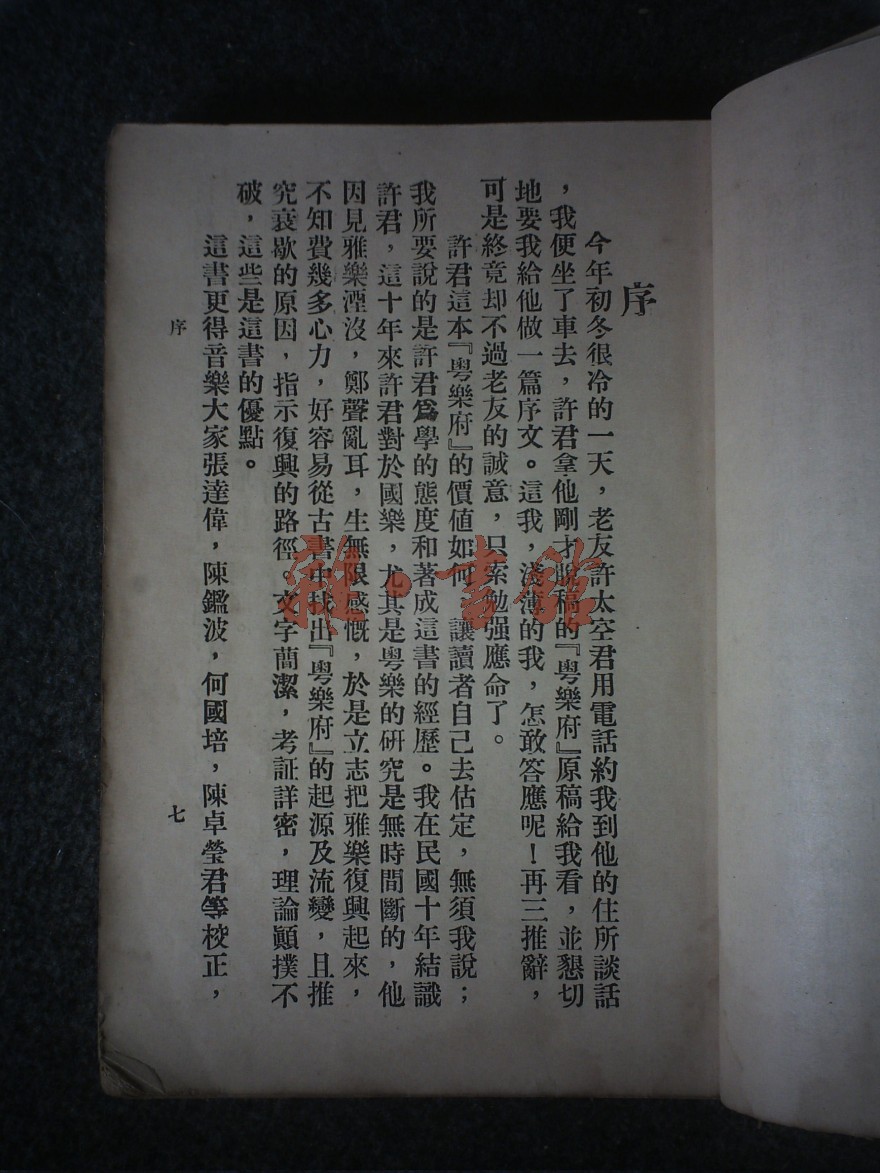 序
今年初冬很冷的一天，老友許太空君用電話約我到他的住所談話
，我便坐了車去，許君拿他剛才脫稿的『粤樂府』原稿給我看，並懇切
地要我給他做一篇序文。這我，淺薄的我，怎敢答應呢！再三推辭，
可是終竟却不過老友的誠意，只索勉强應命了。
許君這本『粤樂府』的價値如何，讓讀者自己去估定，無須我說；
我所要說的是許君爲學的態度和著成這書的經歷。我在民國十年結識
許君，這十年來許君對於國樂，尤其是粤樂的研究是無時間斷的，他
因見雅樂湮沒，鄭聲亂耳，生無限感慨，於是立志把雅樂復興起來，
不知費幾多心力，好容易從古書中找出『粤樂府』的起源及流變，且推
究衰歇的原因，指示復興的路徑。文字蕳潔，考証詳密，理論顚撲不
破，這些是這書的優點。
這書更得音樂大家張達偉，陳鑑波，何國培，陳卓瑩君等校正，
序
七
雜·書館